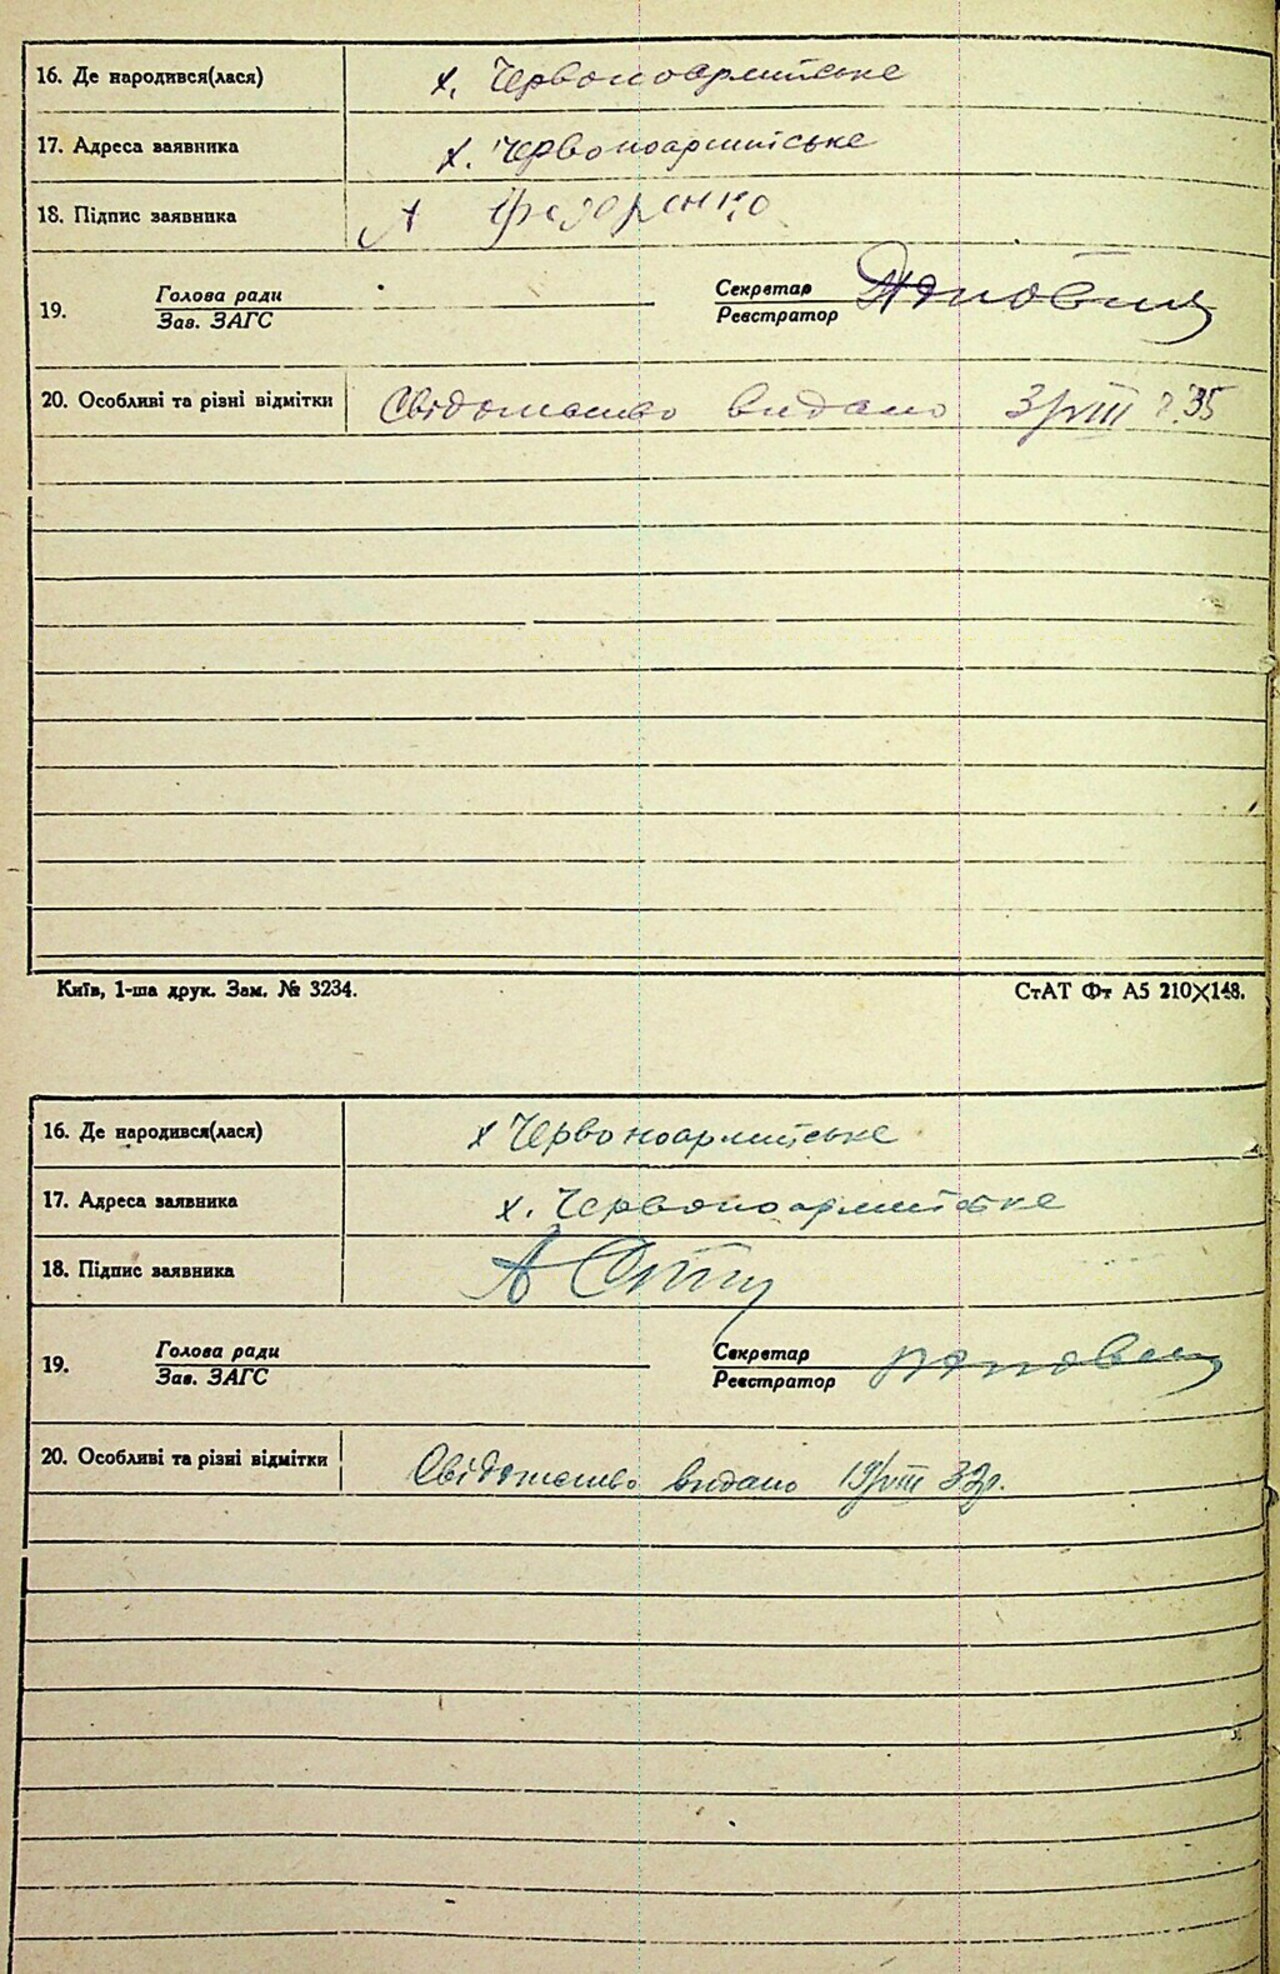 16. Де народився(лася) х. Червоноармійське
17. Адреса заявника х. Червоноармійське
18. Підпис заявника А Федоренко
19. Голова ради Секретар
Зав. ЗАГС Реєстратор
20. Особливі та різні відмітки Свідоцтво видано 3/VIII 35
Київ, 1-ша друк. Зам. № 3234. СтАТ Фт А5 210×148.
16. Де народився(лася) х Червоноармійське
17. Адреса заявника х. Червоноармійське
18. Підпис заявника А
19. Голова ради Секретар
Зав. ЗАГС Реєстратор
20. Особливі та різні відмітки Свідоцтво видано 19/VIII